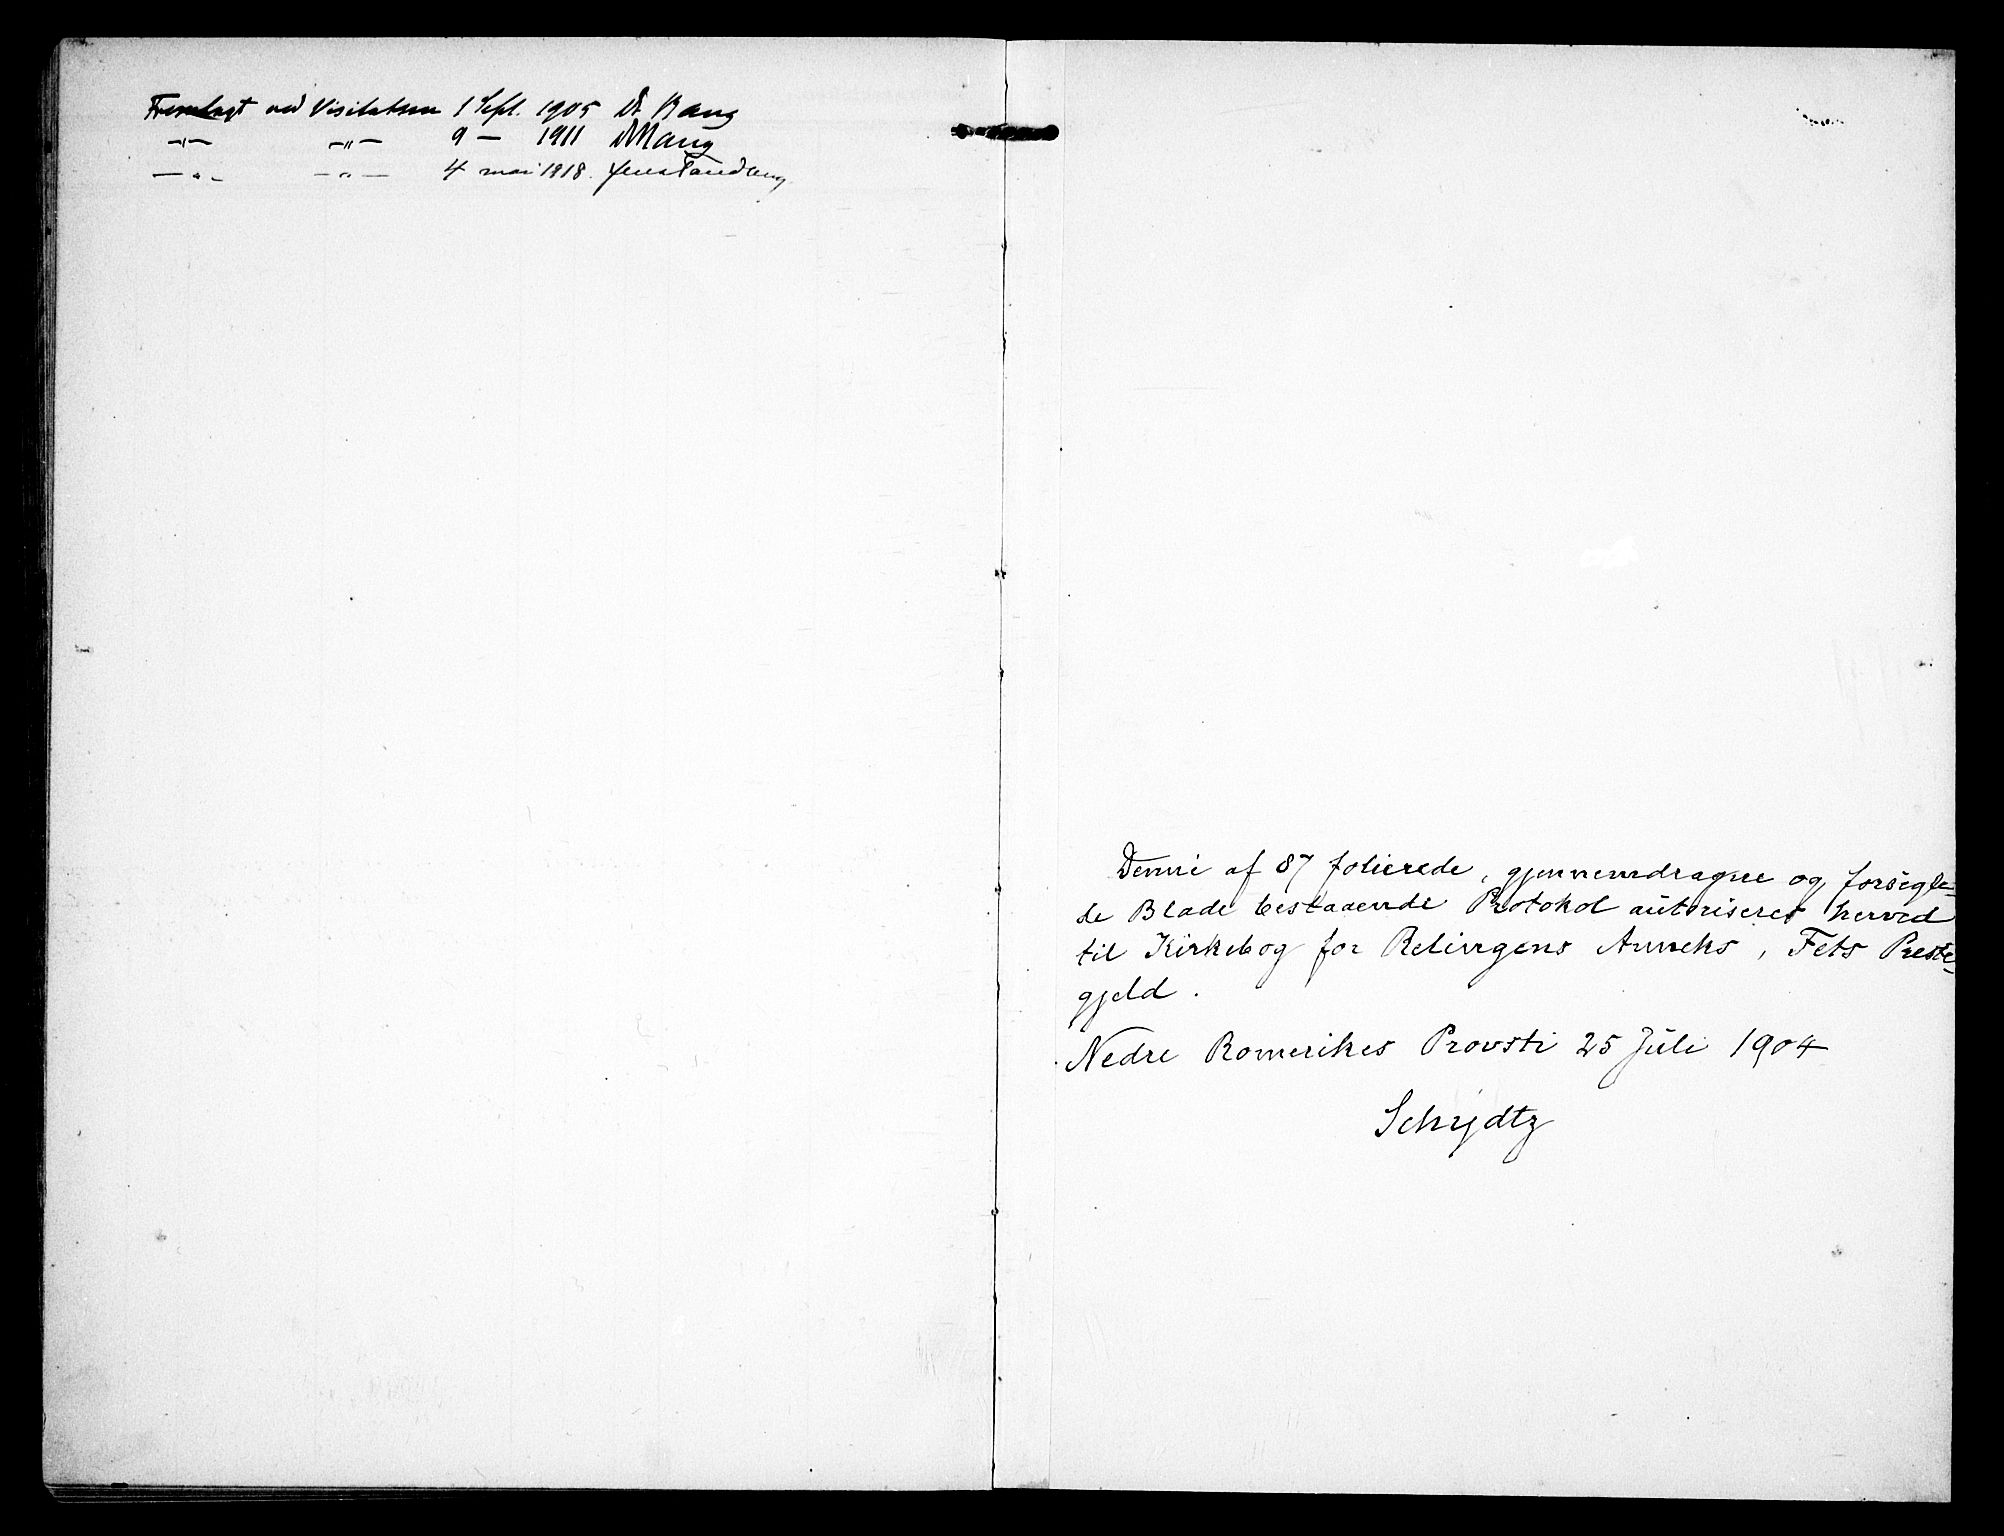 Fremlagt ved Visitatsen 1 Sept. 1905 Dr Bang
-"- -"- 9 - 1911 Dr Bang
-"- -"- 4 mai 1918. Jens Tandberg
Denne af 87 folierede, gjennemdragne og forsegle-
de Blade bestaaende Protokol autoriseres herved
til Kirkebog for Relingens Anneks, Fets Preste-
gjeld.
Nedre Romerikes Provsti 25 Juli 1904
Schrydtz